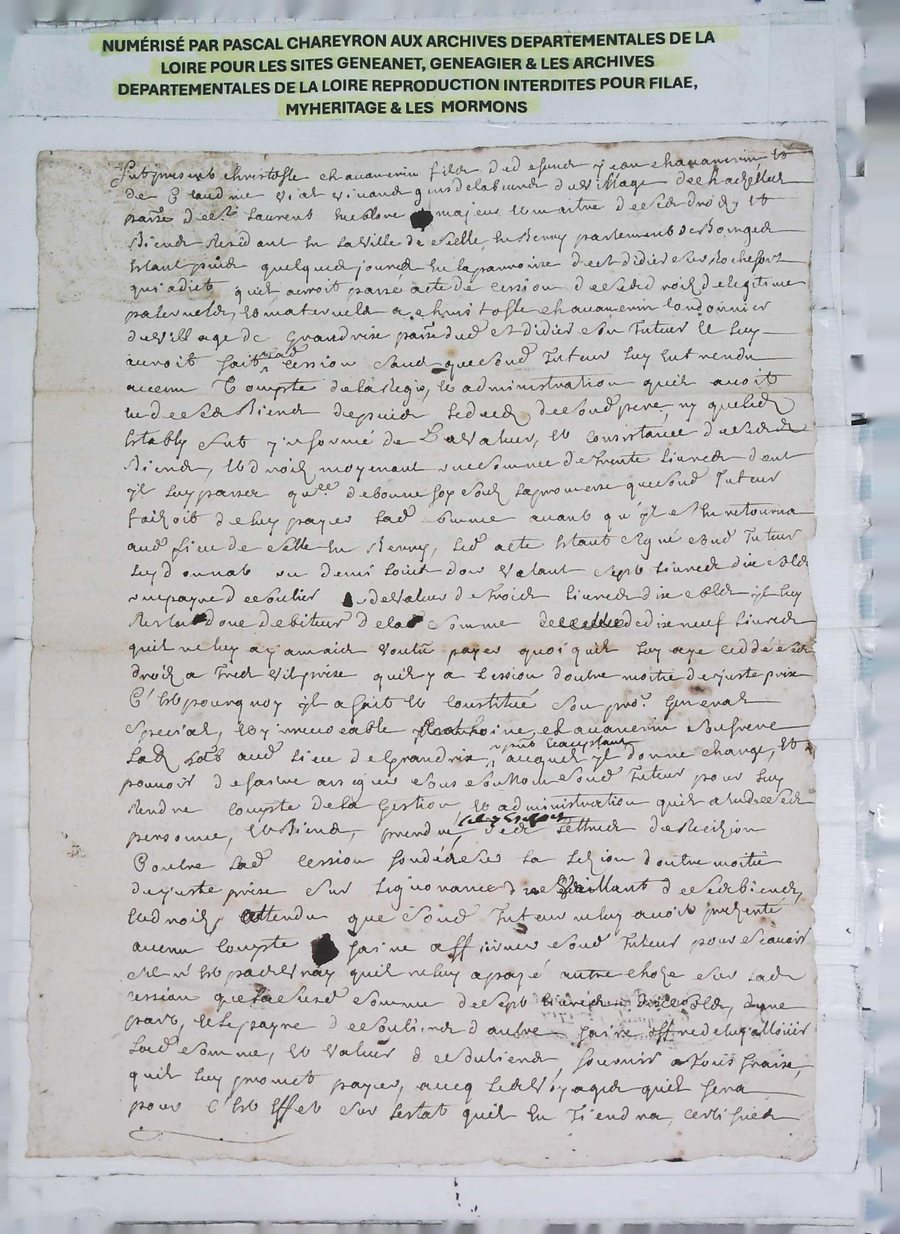 NUMÉRISÉ PAR PASCAL CHAREYRON AUX ARCHIVES DEPARTEMENTALES DE LA
LOIRE POUR LES SITES GENEANET, GENEAGIER & LES ARCHIVES
DEPARTEMENTALES DE LA LOIRE REPRODUCTION INTERDITES POUR FILAE,
MYHERITAGE & LES MORMONS
fut present christofle chavanerin fils de defunct jean chavanerin et
de Claudine vial vivands gens de labeur du village de
parsse de st Laurent majeur et maitre de ses droitz et
Biens Residant en la ville de Selle en Berry parlement de Bourges
estant puis quelques jours en la parroisse de st didier sur Rochefort
qui a dict quil auroit passé acte de cession de ses droits legitime
paternels, et maternels a christofle chavanerin
du village de Grandris parsse dud st didier son Tuteur et luy
auroit fait lad cession sans que sond Tuteur luy eut rendu
aucun Compte de la regie, et administration quil avoit
eu de ses Biens depuis le deces de sond pere, ny quil
estably sut y informé de la valeur, et consistance de sesd
Biens, et droits moyenant une somme de trente livres dont
il luy passa qce de bonne foy sous la promesse que sond Tuteur
faisoit de luy payer lad somme avant qu'il s'en retourna
aud lieu de Selle en Berry, led acte estant signé sond Tuteur
luy donnat un demi Louis dor valant sept livres dix sols
une paire de soulier de valeur de trois livres dix sols il luy
resta donc debiteur de la somme de dix neuf livres
quil ne luy a jamais voulu payer quoi quil luy aye ceddé ses
droits a tres vil prix quil y a lesion d'outre moitie de juste prix
C'est pourquoy il a fait et constitué son pror General
special, et irrevocable Anthoine chavanerin son frere
Lad aud Lieu de Grandris, present et acceptant auquel il donne charge, et
pouvoir de faire assigner sond Tuteur pour luy
rendre compte de la Gestion et administration quil a eu de ses
personne, et Biens, prendre des Lettres de Recizion
Contre lad cession fondée sur la lezion doutre moitie
du juste prix sur lignorance de de ses biens,
et droits, attendu que sond Tuteur ne luy avoit presenté
aucun compte faire affirmer sond Tuteur pour scavoir
s'il n'est pas vray quil ne luy a payé autre choze sur lad
cession que la susd somme de sept livres dix sols, dune
part, et le payre de souliers d'autre faire offre de luy allouer
lad somme, et valeur de souliers, fournir a tous fraix,
quil luy promet payer, avec les voyages quil fera
pour c'est effet sur lestat quil en tiendra, certiffié